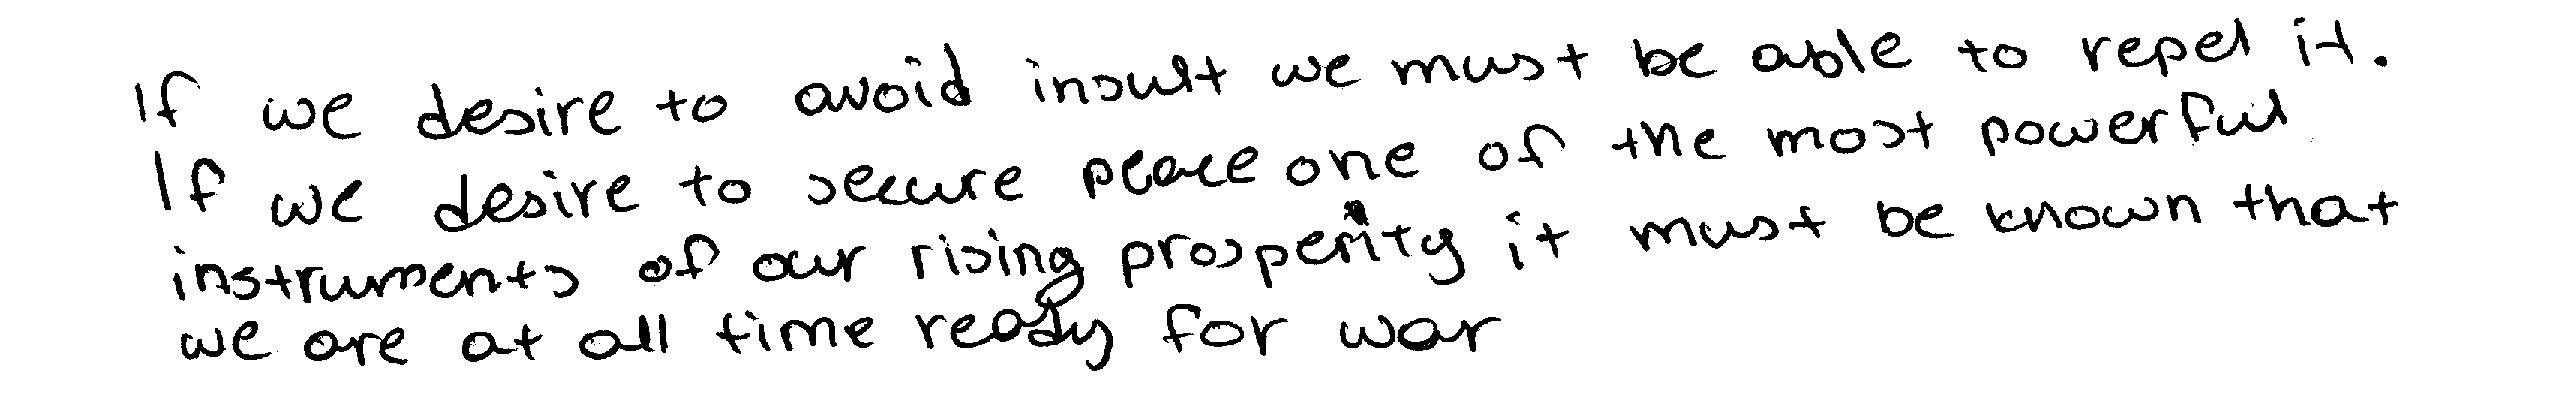 If we desire to avoid insult we must be able to repel it.
If we desire to secure peace one of the most powerful
instruments of our rising prosperity it must be known that
we are at all time ready for war